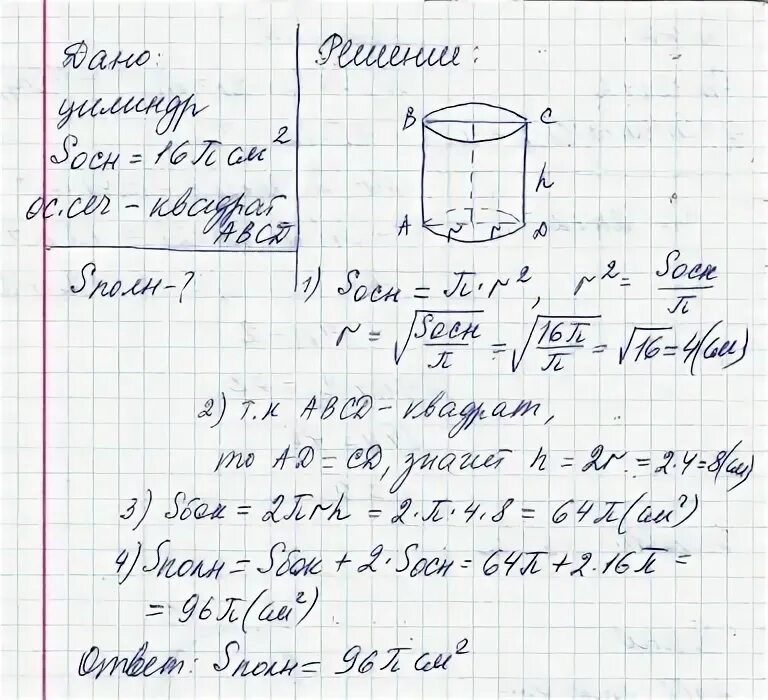 Дано:
цилиндр
Sосн = 16π см²
ос. сеч - квадрат
ABCD
Sполн - ?
Решение:
B C
h
A r r D
1) Sосн = π · r², r² = Sосн/π
r = √(Sосн/π) = √(16π/π) = √16 = 4(см)
2) т.к ABCD - квадрат,
то AD = CD, значит h = 2r = 2·4 = 8(см)
3) Sбок = 2πrh = 2·π·4·8 = 64π(см²)
4) Sполн = Sбок + 2·Sосн = 64π + 2·16π =
= 96π(см²)
Ответ: Sполн = 96π см²